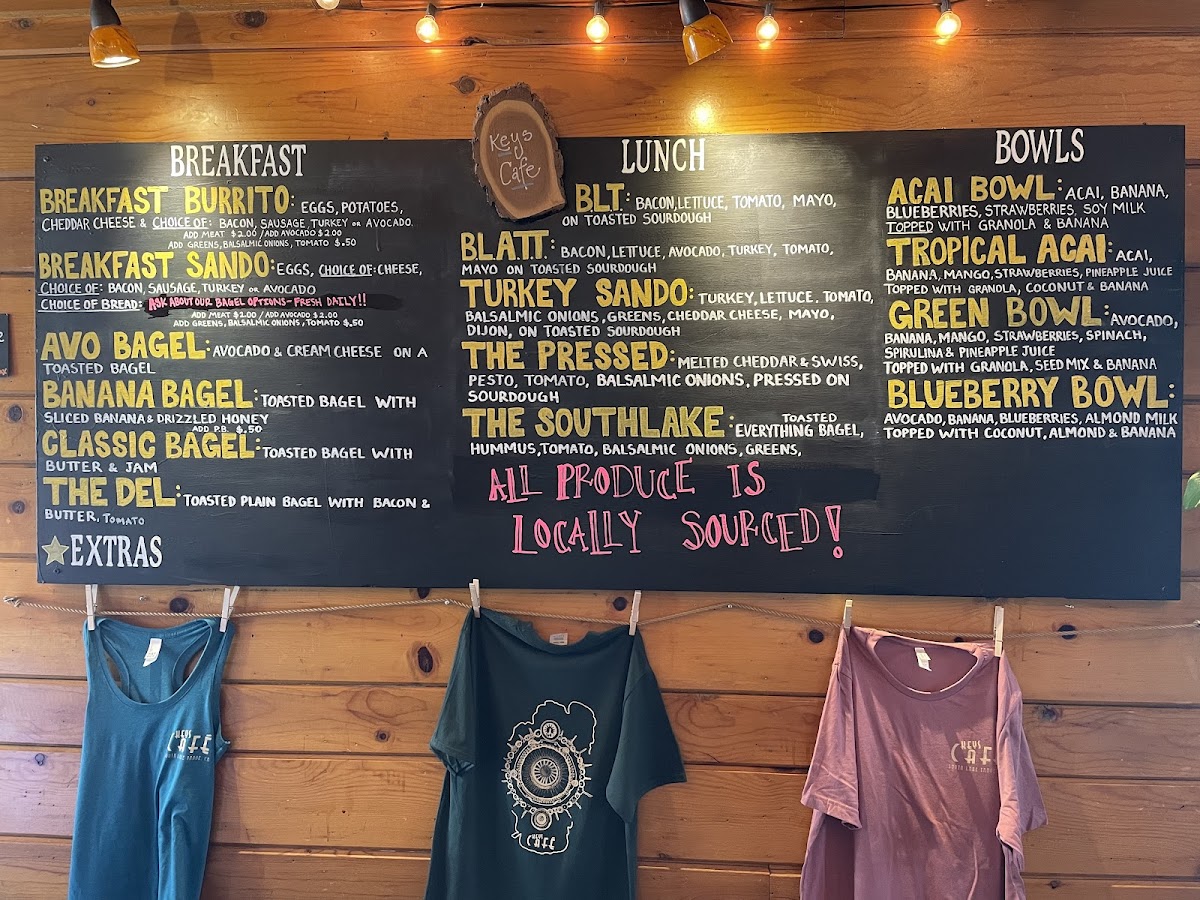 Keys
Cafe
BREAKFAST
BREAKFAST BURRITO: EGGS, POTATOES,
CHEDDAR CHEESE & CHOICE OF: BACON, SAUSAGE, TURKEY OR AVOCADO.
ADD MEAT $2.00 / ADD AVOCADO $2.00
ADD GREENS, BALSALMIC ONIONS, TOMATO $.50
BREAKFAST SANDO: EGGS, CHOICE OF: CHEESE,
CHOICE OF: BACON, SAUSAGE, TURKEY OR AVOCADO
CHOICE OF BREAD: ASK ABOUT OUR BAGEL OPTIONS - FRESH DAILY!!
ADD MEAT $2.00 / ADD AVOCADO $2.00
ADD GREENS, BALSALMIC ONIONS, TOMATO $.50
AVO BAGEL: AVOCADO & CREAM CHEESE ON A
TOASTED BAGEL
BANANA BAGEL: TOASTED BAGEL WITH
SLICED BANANA & DRIZZLED HONEY
ADD P.B. $.50
CLASSIC BAGEL: TOASTED BAGEL WITH
BUTTER & JAM
THE DEL: TOASTED PLAIN BAGEL WITH BACON &
BUTTER, TOMATO
EXTRAS
LUNCH
BLT: BACON, LETTUCE, TOMATO, MAYO,
ON TOASTED SOURDOUGH
BLATT: BACON, LETTUCE, AVOCADO, TURKEY, TOMATO,
MAYO ON TOASTED SOURDOUGH
TURKEY SANDO: TURKEY, LETTUCE. TOMATO,
BALSALMIC ONIONS, GREENS, CHEDDAR CHEESE, MAYO,
DIJON, ON TOASTED SOURDOUGH
THE PRESSED: MELTED CHEDDAR & SWISS,
PESTO, TOMATO, BALSALMIC ONIONS, PRESSED ON
SOURDOUGH
THE SOUTHLAKE: TOASTED
EVERYTHING BAGEL,
HUMMUS, TOMATO, BALSALMIC ONIONS, GREENS,
ALL PRODUCE IS
LOCALLY SOURCED!
BOWLS
ACAI BOWL: ACAI, BANANA,
BLUEBERRIES, STRAWBERRIES, SOY MILK
TOPPED WITH GRANOLA & BANANA
TROPICAL ACAI: ACAI,
BANANA, MANGO, STRAWBERRIES, PINEAPPLE JUICE
TOPPED WITH GRANOLA, COCONUT & BANANA
GREEN BOWL: AVOCADO,
BANANA, MANGO, STRAWBERRIES, SPINACH,
SPIRULINA & PINEAPPLE JUICE
TOPPED WITH GRANOLA, SEED MIX & BANANA
BLUEBERRY BOWL:
AVOCADO, BANANA, BLUEBERRIES, ALMOND MILK
TOPPED WITH COCONUT, ALMOND & BANANA
KEYS
CAFE
KEYS
CAFE
KEYS
CAFE